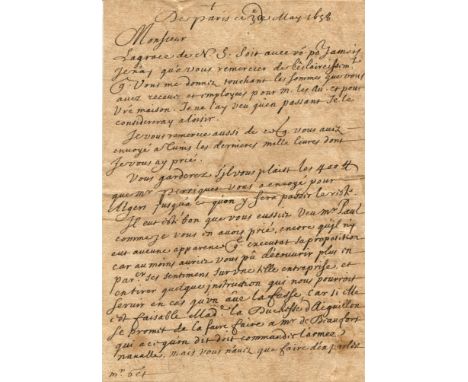 De paris ce May 1658
Monsieur
La grace de N. S. Soit avec vo po Jamais
Je nay qu'a vous remercier de l'eclaircissem.t
q vous me donnez touchant les sommes que vous
avez receues et employees pour m. les et pour
vre maison. Je ne l'ay veu qu'en passant Je le
considereray a loisir.
Je vous remercie aussi de vous aviez
envoyé a Tunis les dernieres mille livres dont
Je vous ay prié.
Vous garderez s'il vous plaist les
que mr vous a envoyé pour
Alger Jusqu'a ce qu'on y fera passer le reste.
Il eut esté bon que vous eussiez veu Mr Paul
comme je vous en avois prié, encore qu'il n'y
eut aucune apparence q executat sa proposition
car au moins auriez vous pû decouvrir plus en
par.er ses sentimens sur une telle entreprise. et
en tirer quelque instruction qui nous pourroit
servir en cas qu'un autre la fasse, car si elle
est faisable Mad.e la Duchesse d'Aeguillon
se promet de la faire faire a mr de Beaufort
qui a ce qu'on dit doit commander l'armée
navalle, mais vous n'avez que faire d'en parler